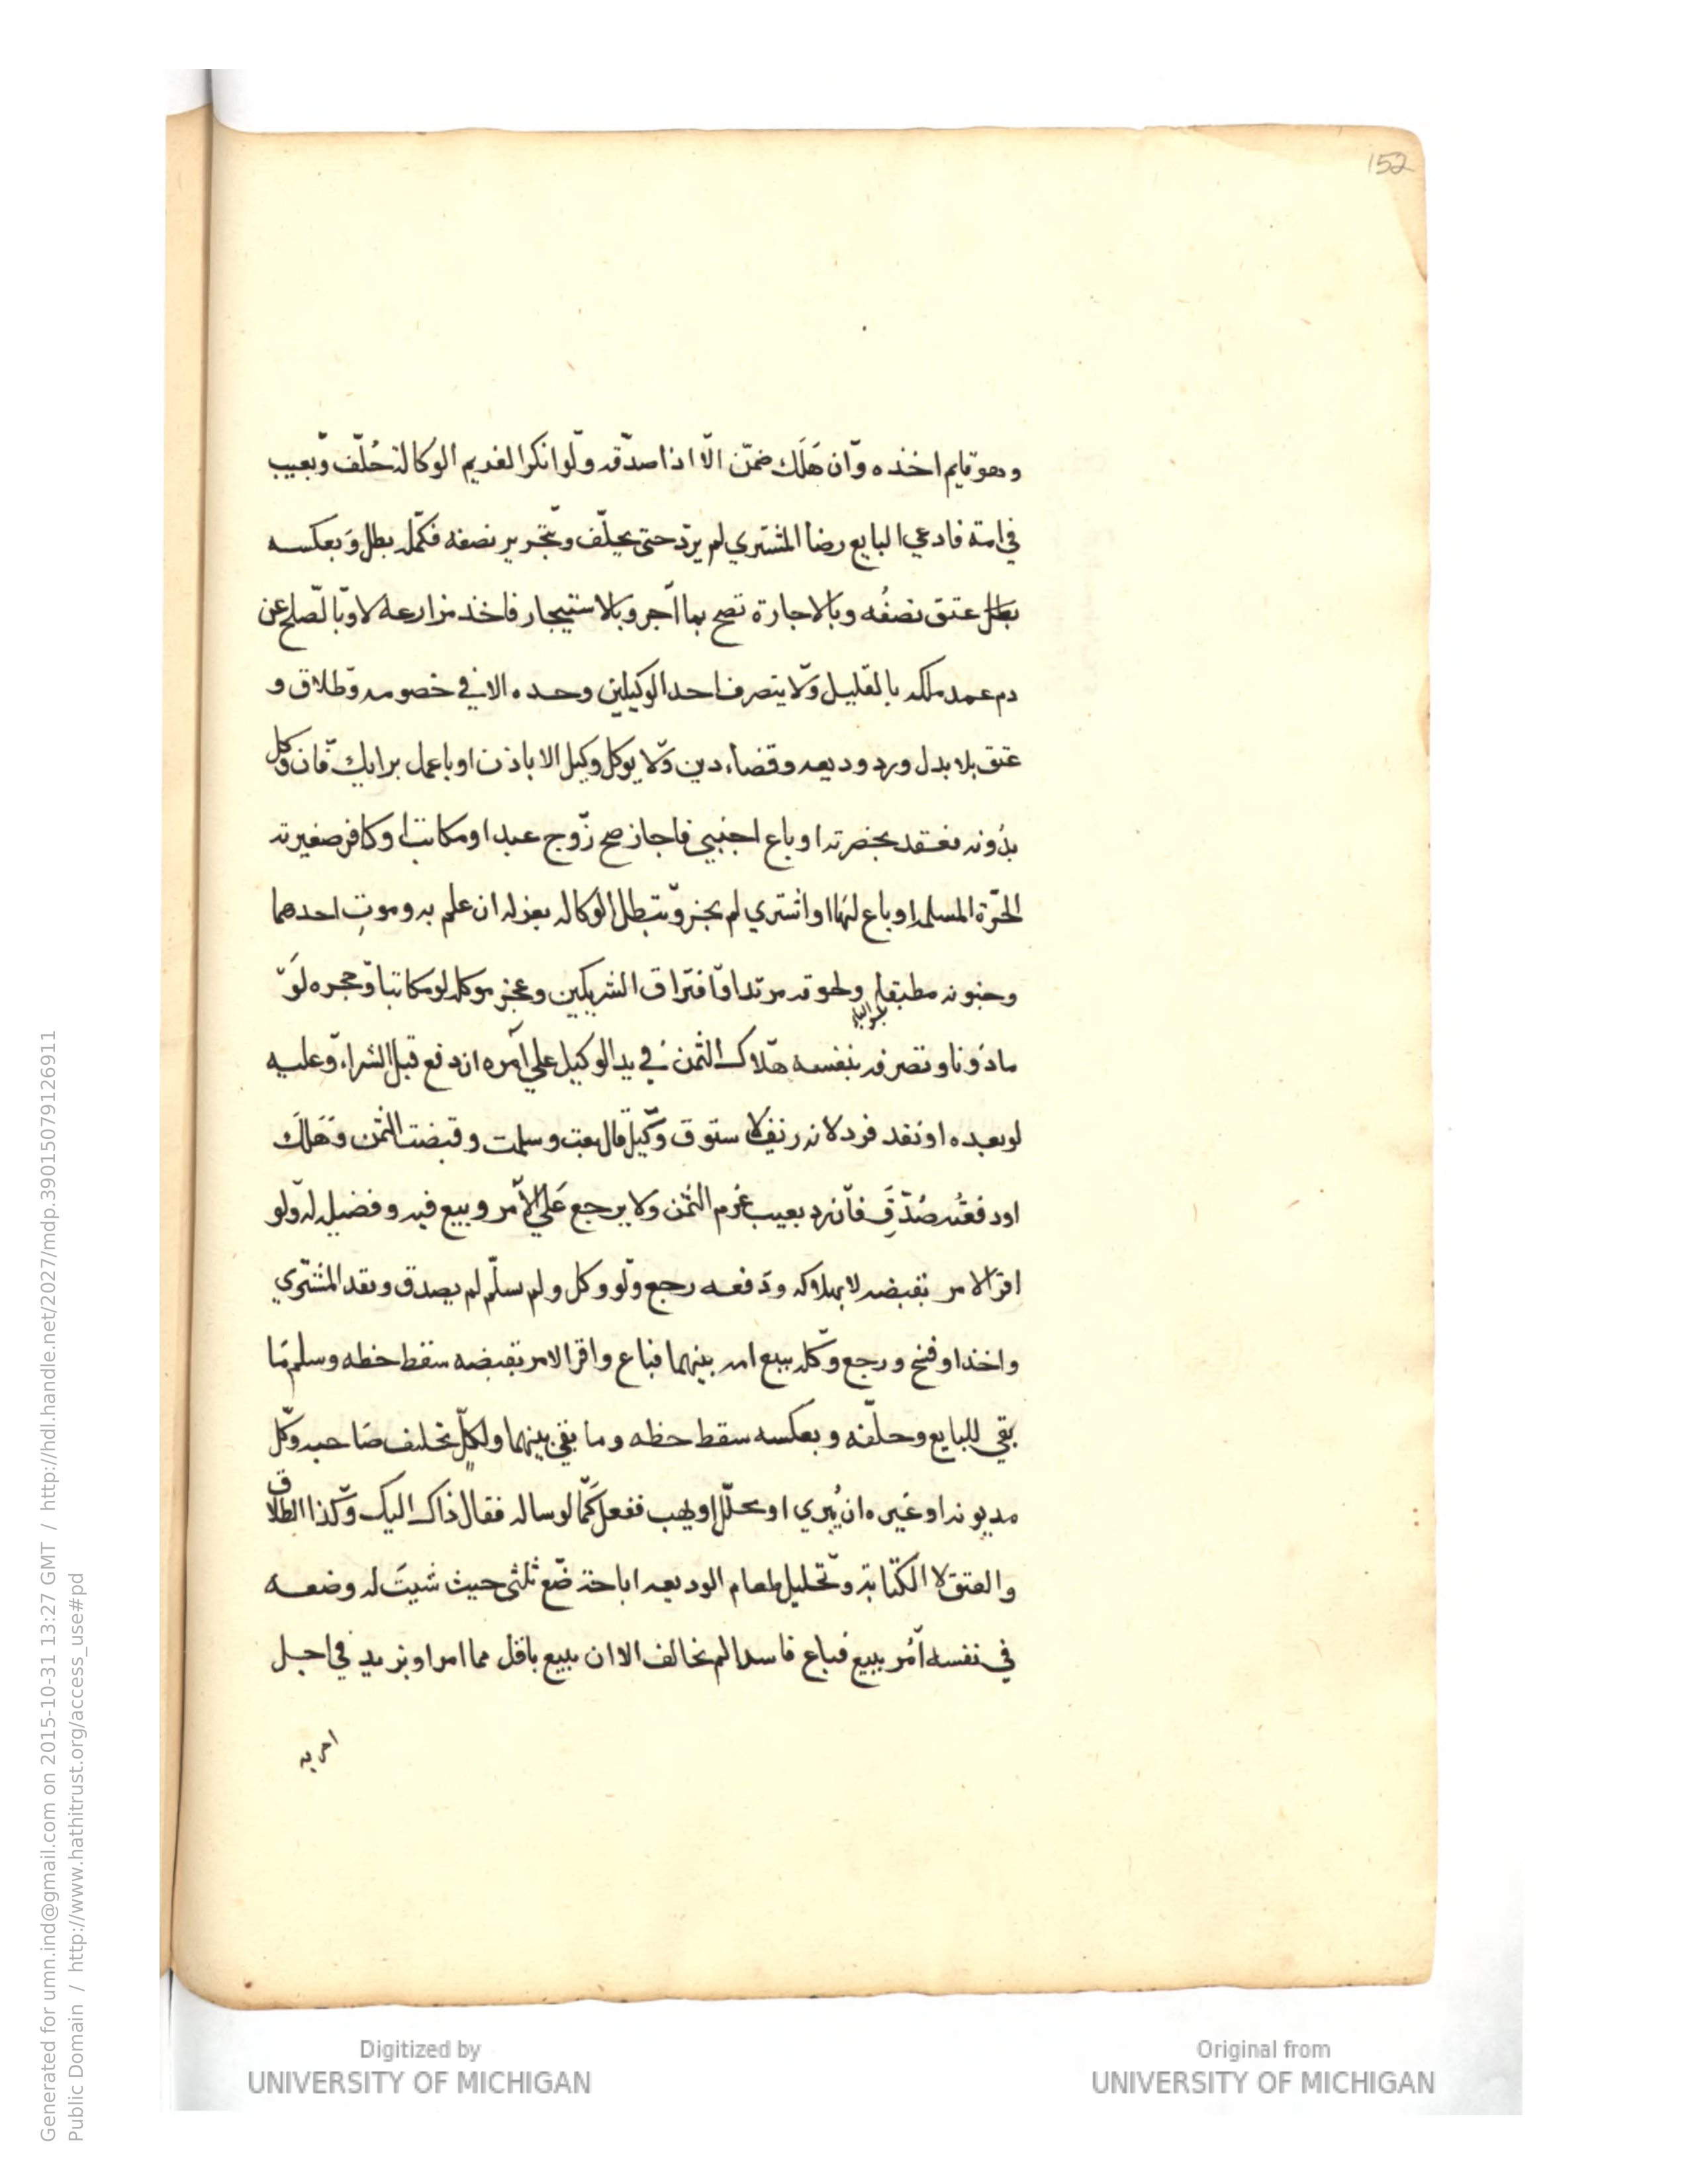 152
وهو قايم اخذه وان هَلَك ضمّن الّا اذا صدّقه ولو انكر الغريم الوكالة حُلّف وبعيب
في امة فادعي البايع رضا المشتري لم يردّ حتى يحلّف وبتحرير نصفه فكمّل بطل وبعكسه
بطل عتق نصفُه وبالاجارة تصح بما آجر وبالاستيجار فاخذ مزارعه لا وبالصّلح عن
دم عمد ملكه بالقليل ولا يتصرف احد الوكيلين وحده الا في خصومه وطلاق و
عتق بلا بدل ورد وديعه وقضاء دين ولا يوكل وكيل الا باذن او باعمل برايك فان وكل
بدُونه فعقد بحضرته او باع اجنبي فاجاز صح زوّج عبد او مكاتب او كافر صغيرته
الحرّة المسلمه او باع لها او اشتري لم يجز وتبطل الوكاله بعزله ان علم به وموتِ احدهما
وجنونه مطبقا ولحوقه مرتدا وافتراق الشريكين وعجز موكله لو مكاتبا وحجره لَو
ماذونا وتصرفه بنفسه هلاك الثمن في يد الوكيل علي آمره ان دفع قبل الشراء وعليه
لو بعده او نقد فرد لانه زيف لا ستوق وكيل قال بعت وسلمت وقبضت الثمن وهَلَك
او دفعتُه صُدّق فان رد بعيب غرم الثمن ولا يرجع عَلي الآمر وبيع فيه وفضيل له ولو
اقر الامر بقبضه لا بهلاكه ودفعه رجع ولو وكل ولم سلّم لم يصدق ونقد المشتري
واخذ او فسخ ورجع وكله ببيع امه بينهما فباع واقر الامر بقبضه سقط حظه وسلم مَا
بقي للبايع وحلّفه وبعكسه سقط حظه وما بقي بينهما ولكلّ تحليف صاحبه وكّل
مديونه او غيره ان يُبري او يحلّل او يهب ففعل كمَا لو ساله فقال ذاك اليك وكذا الطلاق
والعتق لا الكتابة وتحليل طعام الوديعه اباحة ضع ثلثي حيث شيت له وضعه
في نفسه اُمر ببيع فباع فاسدا لم يخالف الا ان يبيع باقل مما امر او يزيد في اجل
امر به
Generated for umn.ind@gmail.com on 2015-10-31 13:27 GMT / http://hdl.handle.net/2027/mdp.39015079126911
Public Domain / http://www.hathitrust.org/access_use#pd
Digitized by
UNIVERSITY OF MICHIGAN
Original from
UNIVERSITY OF MICHIGAN